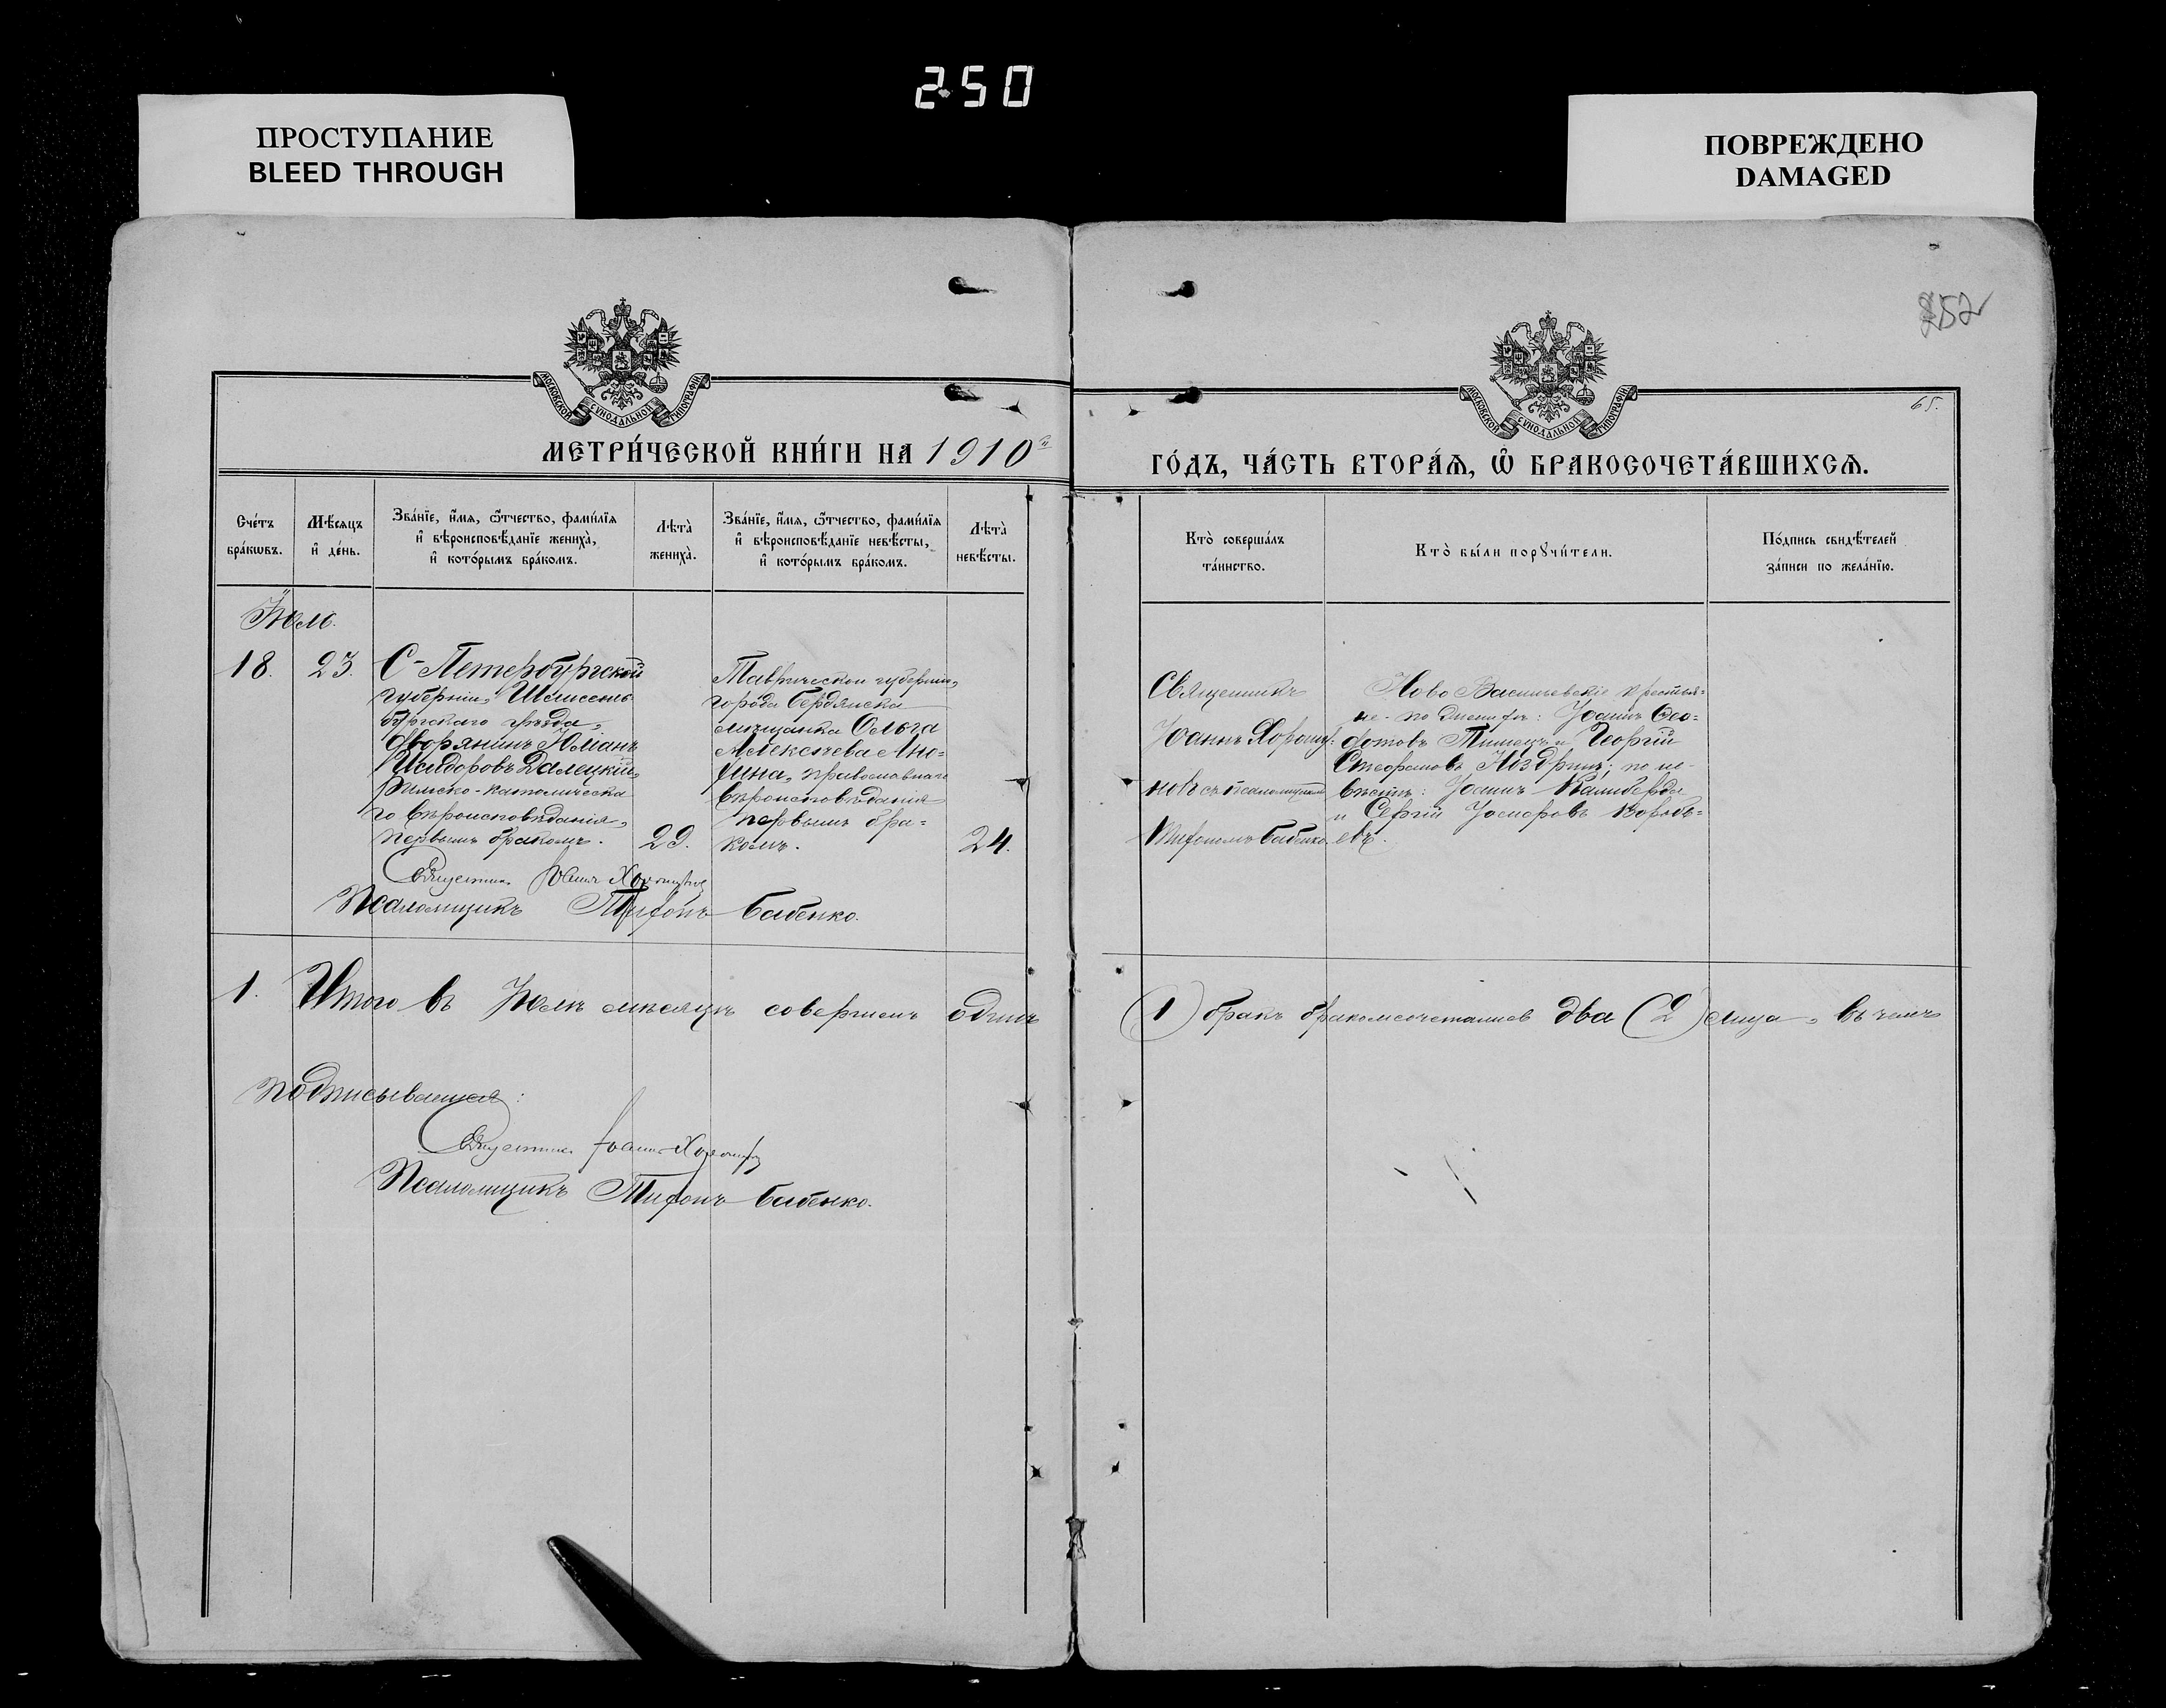 250
ПРОСТУПАНИЕ
BLEED THROUGH
ПОВРЕЖДЕНО
DAMAGED
252
65.
МОСКОВСКОЙ СѴНОДАЛЬНОЙ ТИПОГРАФІИ
МОСКОВСКОЙ СѴНОДАЛЬНОЙ ТИПОГРАФІИ
МЕТРИ́ЧЕСКОЙ КНИ́ГИ НА 1910й
ГО́ДЪ, ЧА́СТЬ ВТОРА́Ѧ, Ѽ БРАКОСОЧЕТА́ВШИХСѦ.
Сче́тъ бра́кѡвъ.
Мѣ́сяцъ и де́нь.
Зва́нїе, и́мя, ѻ́тчество, фами́лїя и вѣроисповѣ́данїе жениха̀, и кото́рымъ бра́комъ.
Лѣта̀ жениха̀.
Зва́нїе, и́мя, ѻ́тчество, фами́лїя и вѣроисповѣ́данїе невѣ́сты, и кото́рымъ бра́комъ.
Лѣта̀ невѣ́сты.
Кто̀ соверша́лъ та́инство.
Кто̀ бы́ли порꙋчи́тели.
По́дпись свидѣ́телей за́писи по жела́нїю.
Іюль.
18. 23.
С-Петербургской
губерніи, Шлиссель-
бургскаго уѣзда,
дворянинъ Юліанъ
Исидоровъ Далецкій,
Римско-католическа
го вѣроисповѣданія,
первымъ бракомъ. 29.
Таврической губерніи,
города Бердянска
мѣщанка Ольга
Алексѣева Ано-
хина, православнаго
вѣроисповѣданія
первымъ бра-
комъ. 24.
Священникъ
Іоаннъ Хорошу-
новъ съ псаломщикомъ
Тифономъ Бабенко.
Ново Васильевскіе крестья-
не. по женихѣ: Іоаннъ Ѳео-
дотовъ и Георгій
Стефановъ Ноздринъ; по не-
вѣстѣ: Іоаннъ Калиберда
и Сергій Іосифовъ Воробь-
евъ.
Священникъ Іоаннъ Хорошуновъ
Псаломщикъ Тифонъ Бабенко.
1. Итого въ Іюлѣ мѣсяцѣ совершенъ одинъ (1) бракъ бракомсочетались два (2) лица, въ чемъ
подписываемся:
Священникъ Іоаннъ Хорошуновъ
Псаломщикъ Тифонъ Бабенко.